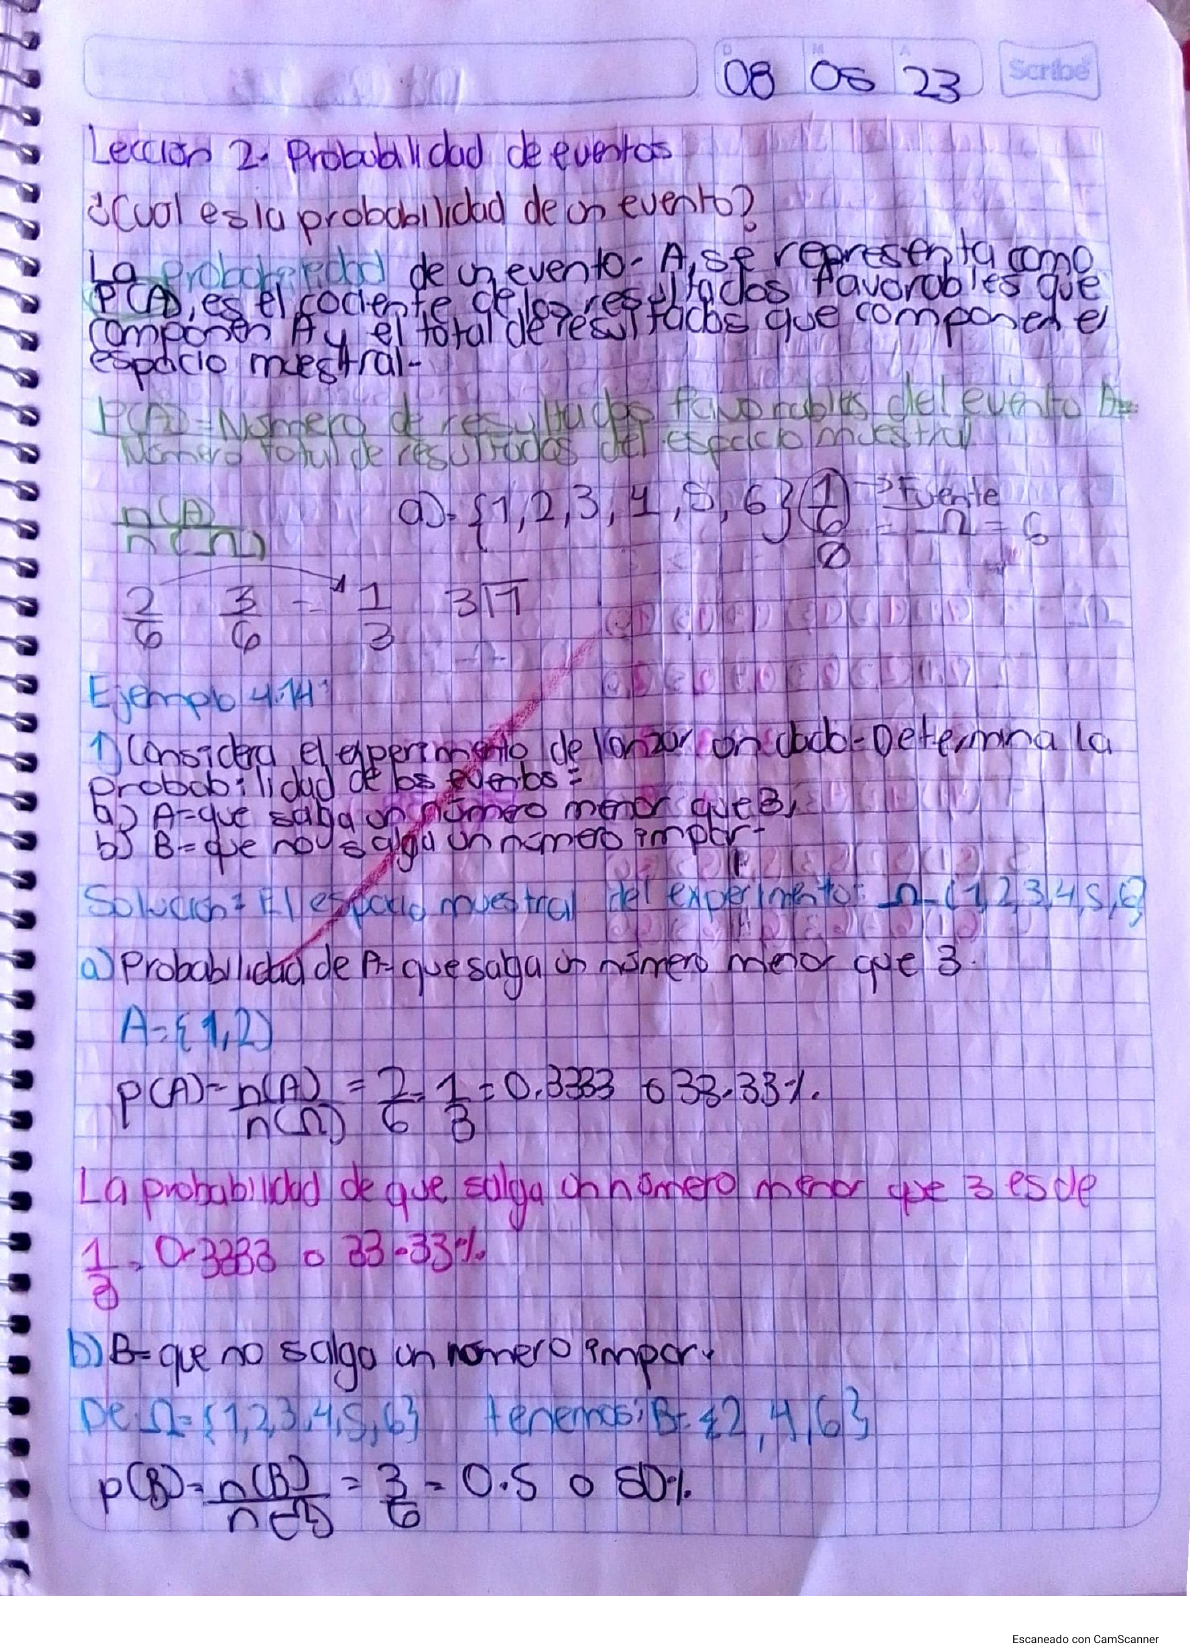 08 05 23 Scribe
Lección 2. Probabilidad de eventos
¿Cual es la probabilidad de un evento?
La probabilidad de un evento - A, se representa como
P(A), es el cociente de los resultados favorables que
componen A y el total de resultados que componen el
espacio muestral-
P(A)=Número de resultados favorables del evento A=
Número total de resultados del espacio muestral
n(A)
n(Ω)
a)= {1,2,3,4,5,6} 1/6 → Fuente
Ω = 6
2/6 3/6 = 1/3 3√1
Ejemplo 4.14:
1) Considera el experimento de lanzar un dado-Determina la
probabilidad de los eventos=
a) A=que salga un número menor que 3,
b) B=que no salga un número impar-
Solución= El espacio muestral del experimento: Ω={1,2,3,4,5,6}
a) Probabilidad de A=que salga un número menor que 3.
A={1,2}
P(A)=n(A)/n(Ω) = 2/6=1/3=0.3333 ó 33.33%.
La probabilidad de que salga un número menor que 3 es de
1/3=0.3333 o 33.33%
b) B=que no salga un número impar.
De Ω={1,2,3,4,5,6} tenemos; B={2,4,6}
P(B)=n(B)/n(Ω) = 3/6 = 0.5 o 50%.
Escaneado con CamScanner